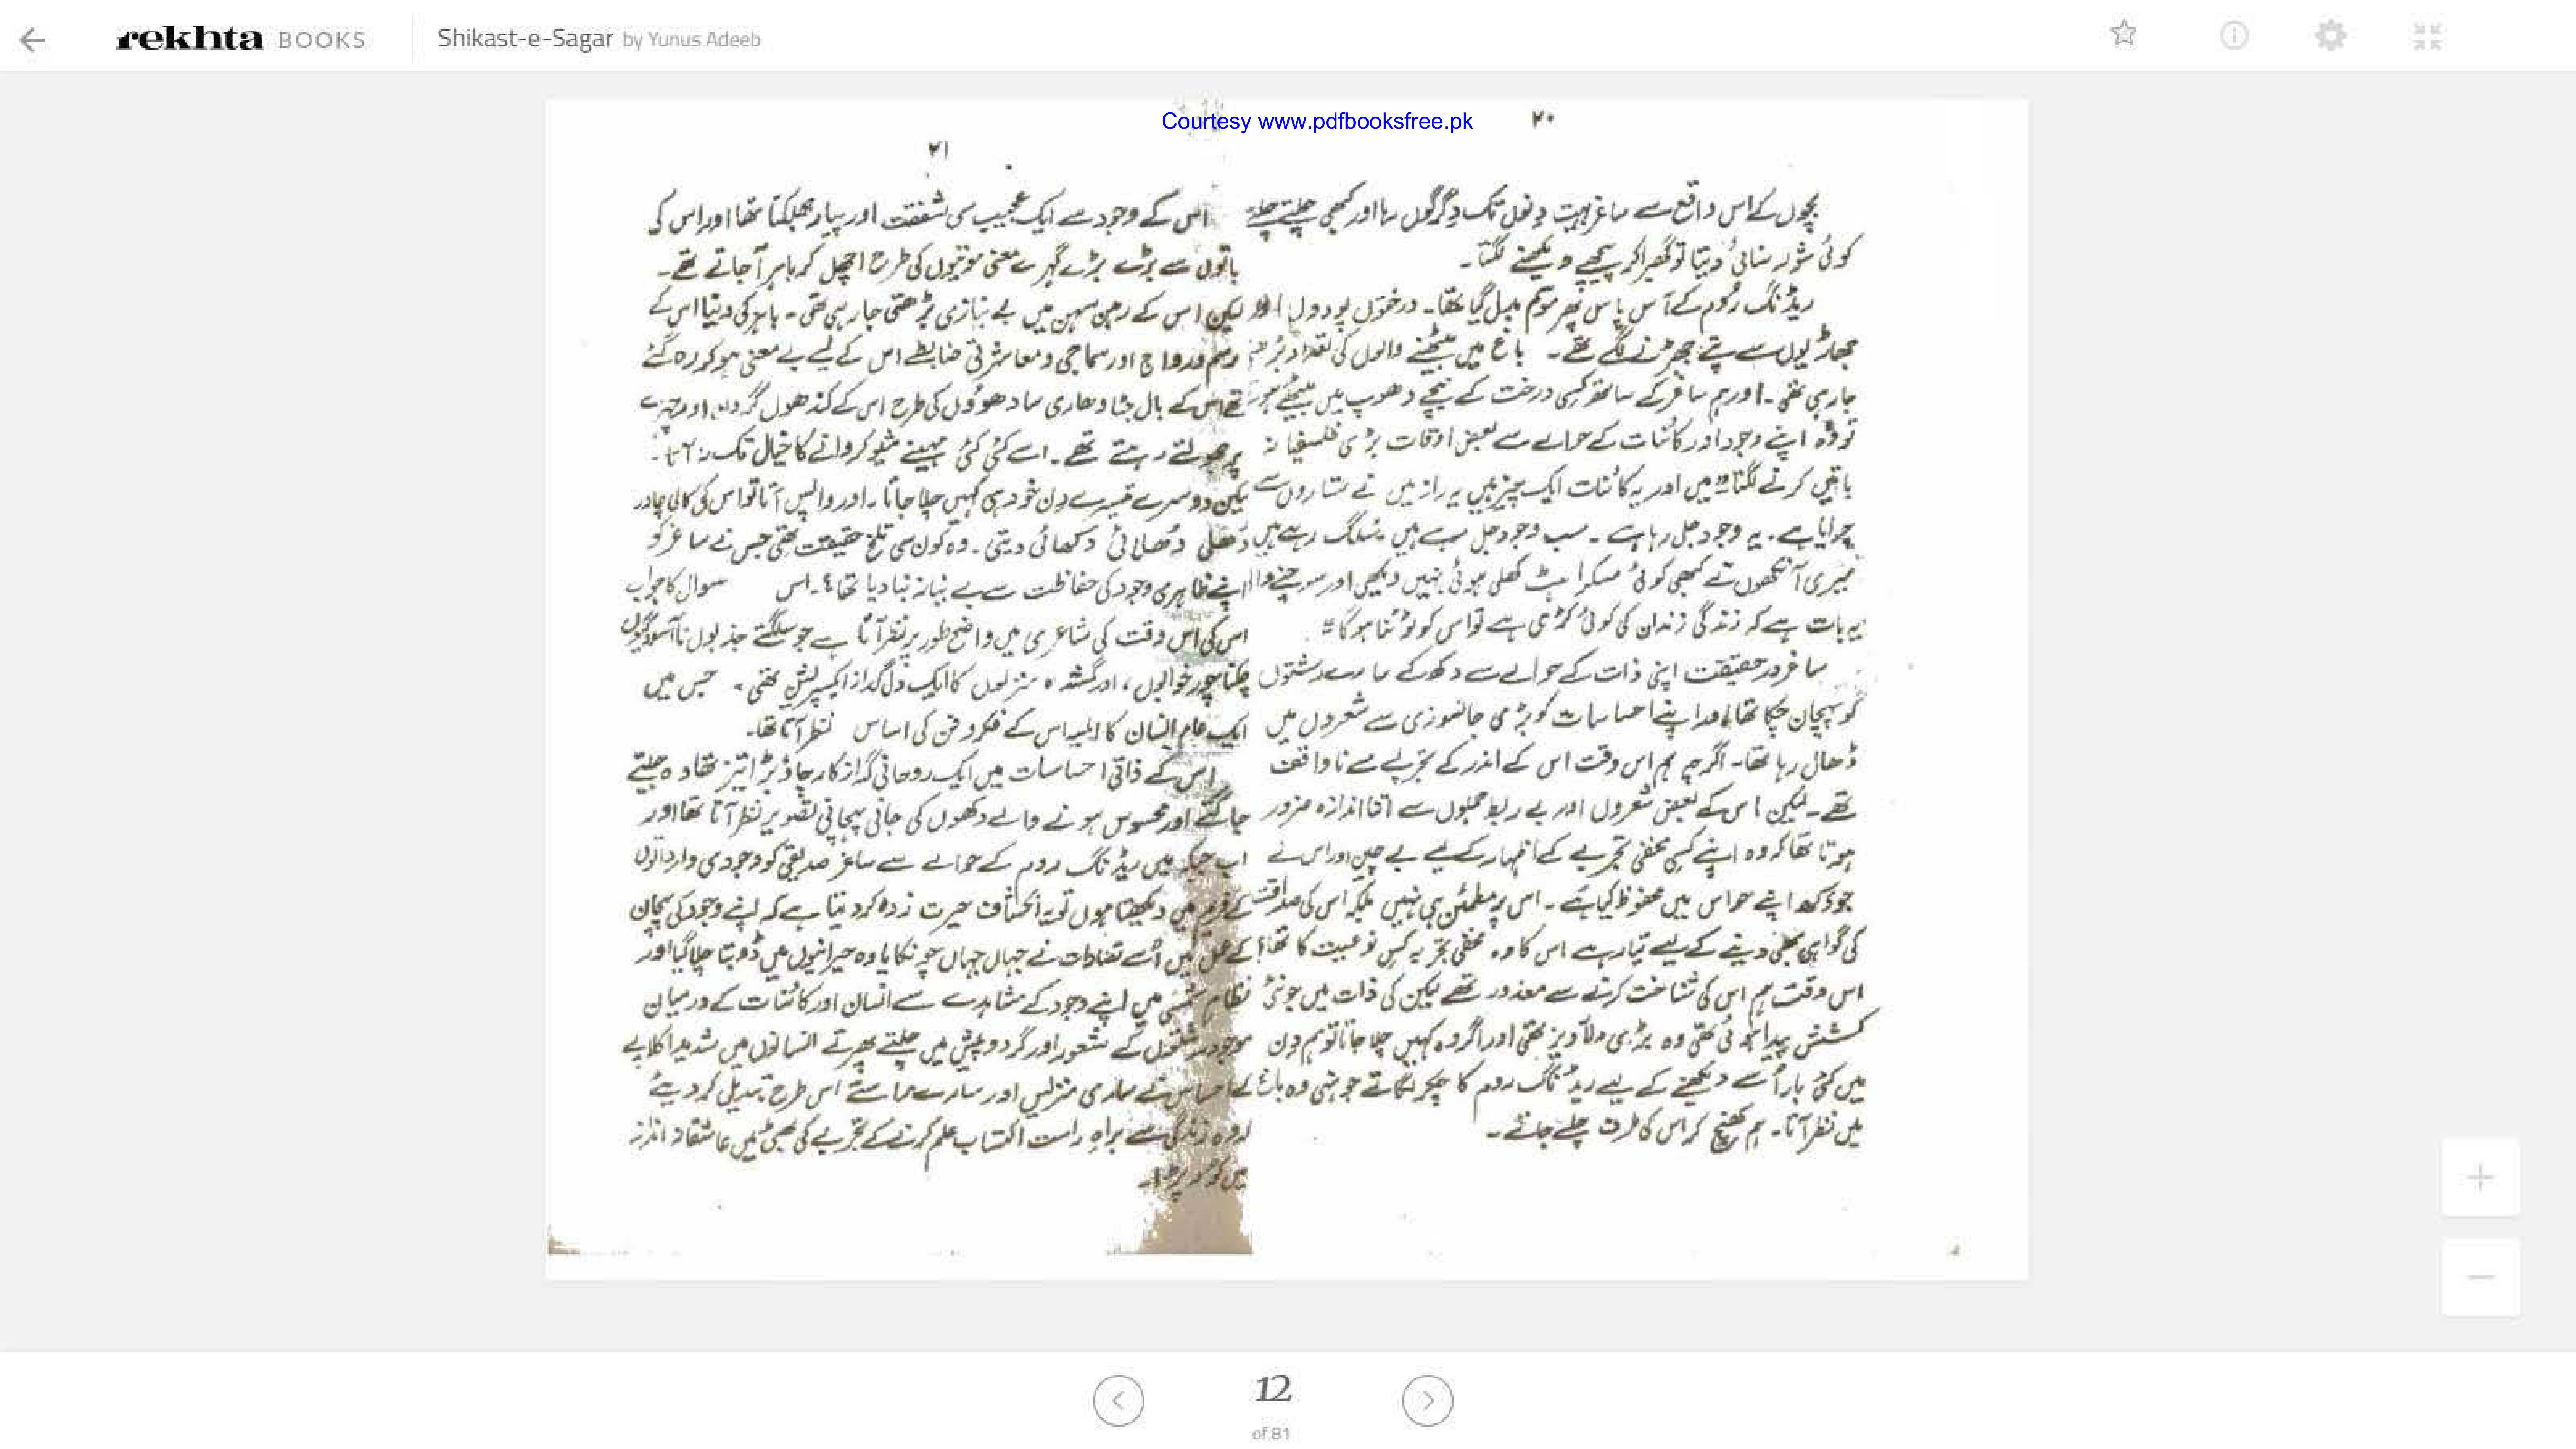 rekhta BOOKS
Shikast-e-Sagar by Yunus Adeeb
Courtesy www.pdfbooksfree.pk
۲۰
بچوں کے اس واقع سے ساغر بہت دنوں تک دگرگوں رہا اور کبھی چلتے چلتے
کوئی شور سنائی دیتا تو گھبرا کر پیچھے دیکھنے لگتا۔
ریڈنگ روم کے آس پاس پھر موسم بدل گیا تھا۔ درختوں پودوں اور
جھاڑیوں سے پتے جھڑنے لگے تھے۔ باغ میں بیٹھنے والوں کی تعداد بڑھتی
جا رہی تھی۔ اور ہم ساغر کے ساتھ کسی درخت کے نیچے دھوپ میں بیٹھے ہوتے
تو وہ اپنے وجود اور کائنات کے حوالے سے بعض اوقات بڑی فلسفیانہ
باتیں کرنے لگتا "میں اور یہ کائنات ایک چیز ہیں یہ راز میں نے ستاروں سے
چرایا ہے۔ یہ وجود جل رہا ہے۔ سب وجود جل رہے ہیں سلگ رہے ہیں
میری آنکھوں نے کبھی کوئی مسکراہٹ کھلی ہوئی نہیں دیکھی اور سوچنے والی
یہ بات ہے کہ زندگی زندان کی کوئی کڑی ہے تو اس کو ٹوٹنا ہوگا"
ساغر در حقیقت اپنی ذات کے حوالے سے دکھ کے سارے رشتوں
کو پہچان چکا تھا اور اپنے احساسات کو بڑی جانسوزی سے شعروں میں
ڈھال رہا تھا۔ اگرچہ ہم اس وقت اس کے اندر کے تجربے سے ناواقف
تھے۔ لیکن اس کے بعض شعروں اور بے ربط جملوں سے اتنا اندازہ ضرور
ہوتا تھا کہ وہ اپنے کسی مخفی تجربے کے اظہار کے لیے بے چین اور اس نے
جو دکھ اپنے حواس میں محفوظ کیا ہے۔ اس پر مطمئن ہی نہیں بلکہ اس کی صداقت
کی گواہی بھی دینے کے لیے تیار ہے اس کا وہ مخفی تجربہ کس نوعیت کا تھا؟
اس وقت ہم اس کی شناخت کرنے سے معذور تھے لیکن کی ذات میں جو نئی
کشش پیدا ہوئی تھی وہ بڑی دلآویز تھی اور اگر وہ کہیں چلا جاتا تو ہم دن
میں کئی بار اُسے دیکھنے کے لیے ریڈنگ روم کا چکر لگاتے جونہی وہ باغ
میں نظر آتا۔ ہم کھنچ کر اس کی طرف چلے جاتے۔
۲۱
اس کے وجود سے ایک عجیب سی شفقت اور پیار جھلکتا تھا اور اس کی
باتوں سے بڑے بڑے گہرے معنی موتیوں کی طرح اچھل کر باہر آ جاتے تھے۔
لیکن اس کے رہن سہن میں بے نیازی بڑھتی جا رہی تھی۔ باہر کی دنیا اس کے
رسم و رواج اور سماجی و معاشرتی ضابطے اس کے لیے بے معنی ہو کر رہ گئے
تھے اس کے بال جٹا دھاری سادھوؤں کی طرح اس کے کندھوں گردن اور چہرے
پر جھولتے رہتے تھے۔ اسے کئی کئی مہینے شیو کروانے کا خیال تک نہ آتا۔
لیکن دوسرے تیسرے دن خود ہی کہیں چلا جاتا۔ اور واپس آتا تو اس کی کالی چادر
دھلی دھلائی دکھائی دیتی۔ وہ کون سی تلخ حقیقت تھی جس نے ساغر کو
اپنے ظاہری وجود کی حفاظت سے بے نیاز بنا دیا تھا؟۔ اس سوال کا جواب
اس کی اس وقت کی شاعری میں واضح طور پر نظر آتا ہے جو سلگتے جذبوں نا آسودگیوں
چکنا چور خوابوں، اور گمشدہ منزلوں کا ایک دل گداز ایکسپریشن تھی، جس میں
ایک عام انسان کا المیہ اس کے فکر و فن کی اساس نظر آتا تھا۔
اس کے ذاتی احساسات میں ایک روحانی گداز کا رچاؤ بڑا تیز تھا وہ جلتے
جاگتے اور محسوس ہونے والے دکھوں کی جانی پہچانی تصویر نظر آتا تھا اور
اب جبکہ میں ریڈنگ روم کے حوالے سے ساغر صدیقی کو وجودی وارداتوں
کے فریم میں دیکھتا ہوں تو یہ انکشاف حیرت زدہ کر دیتا ہے کہ اپنے وجود کی پہچان
کے عمل میں اُسے تضادات نے جہاں جہاں چونکایا وہ حیرانیوں میں ڈوبتا چلا گیا اور
نظام شمسی میں اپنے وجود کے مشاہدے سے انسان اور کائنات کے درمیان
موجود رشتوں کے شعور اور گرد و پیش میں چلتے پھرتے انسانوں میں شدید اکلاپے
کے احساس نے ساری منزلیں اور سارے راستے اس طرح تبدیل کر دیئے
کہ وہ زندگی سے براہِ راست اکتساب علم کرنے کے تجربے کی بھٹی میں عاشقانہ انداز
میں کود پڑا۔
12
of 81